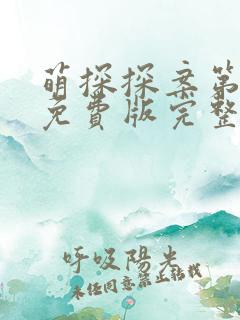 萌探探案第
免費版完整
呼吸陽光
未经同意禁止转载